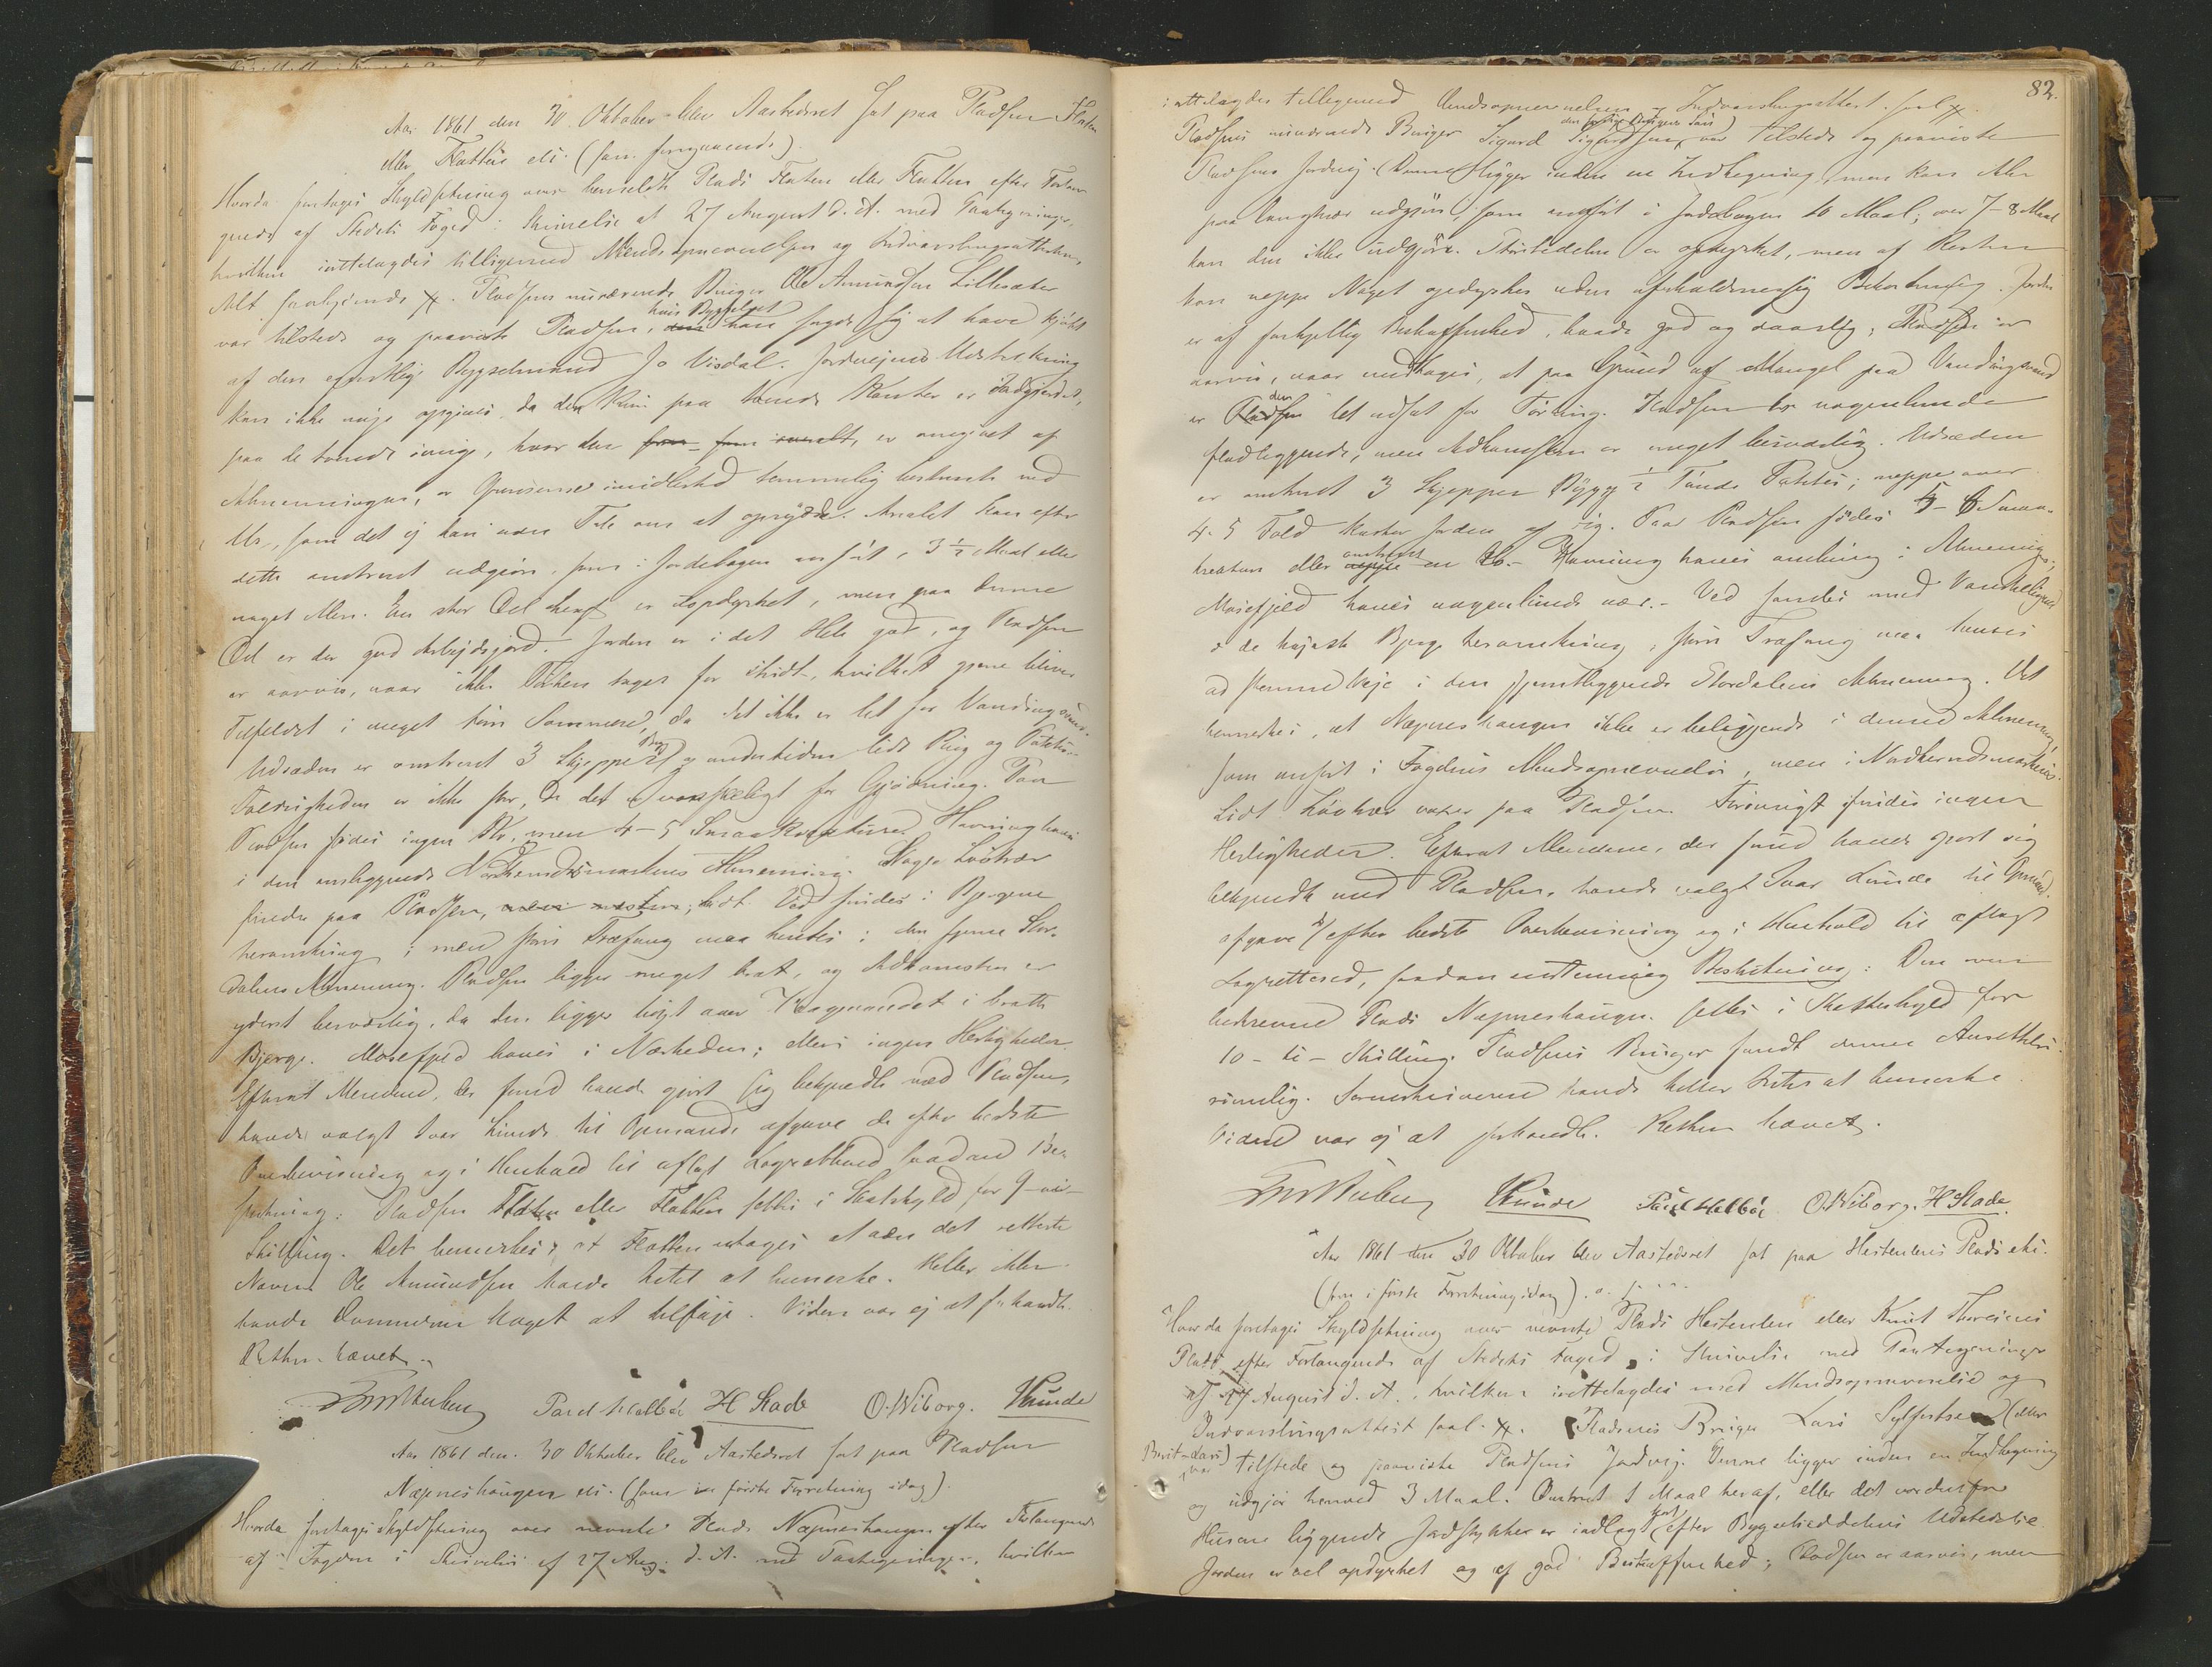 Aar 1861 den 30 Oktober blev Aastedsret sat paa Pladsen Flaten
eller Flatten etc. (som foregaaende).
Hvorda foretages Skyldsetning over bemeldte Plads Flaten eller Flatten efter Forlan-
gende af Stedets Foged i Skrivelse af 27 August d. A. med Paategninger,
hvilken irettelagdes tilligemed Mendsopnevnelsen og Indvarslingsattesten,
Alt saalydende #. Pladsens nuværende Bruger Ole Amundsen Lillesæter
var tilstede og paaviste Pladsen, hvis Bygselret han sagde sig at have kjøbt
af den egentlige Bygselmand Jo Visdal. Jordvejens Udstrekning
kan ikke nøje opgives, da den kun paa tvende Kanter er indgjerdet,
paa de tvende øvrige, hvor den er omgivet af
Almenningen, er Grensene imidlertid temmelig bestemte ved
Ur, som det ej kan være Tale om at oprydde. Arealet kan efter
dette omtrent udgjøre, som i Jordebogen anført, 3½ Maal eller
noget Mere. En stor Del heraf er uopdyrket, men paa denne
Del er der god Arbejdsjord. Jorden er i det Hele god, og Pladsen
er aarvis, naar ikke Tørken tager for stridt, hvilket gjerne bliver
Tilfeldet i meget tørre Sommere, da det ikke er let for Vandingsvand.
Udsæden er omtrent 3 Skjepper Byg og undertiden lidt Rug og Poteter.
Foldrigheden er ikke stor, da det er vanskeligt for Gjødning. Paa
Pladsen fødes ingen Ko, men 4-5 Smaakreature. Havning haves
i den omliggende Nordherredsmarkens Almenning. Noget Løvtrær
findes paa Pladsen, lidt Ved findes i Bjergene
heromkring; men større Træfang maa hentes i den fjerne Stor-
dalens Almenning. Pladsen ligger meget brat, og Adkomsten er
yderst besværlig, da den ligger høit over Vaagevandet i bratte
Bjerge. Mosefjeld haves i Nærheden; ellers ingen Herligheder.
Efterat Mendene, der forud havde gjort sig bekjendte med Pladsen,
havde valgt Ivar Lunde til Opmand, afgave de efter bedste
Overbevisning og i Henhold til aflagt Lagretteed saadan Be-
stemning: Pladsen Flaten eller Flatten settes i Skatskyld for 9 - ni -
Skilling. Det bemerkes, at Flatten antages at være det retteste
Navn. Ole Amundsen havde Intet at bemerke. Heller ikke
havde Dommeren Noget at tilføje. Videre var ej at forhandle.
Retten hævet.
Paul Kolbø H Stade O. Wiborg. Lunde
Aar 1861 den 30 Oktober blev Aastedsret sat paa Pladsen
Næpneshaugen etc. (som i første Forretning idag).
Hvorda foretages Skyldsetning over nevnte Plads Næpneshaugen efter Forlangende
af Fogden i Skrivelse af 27 Aug. d. A. med Paategninger, hvilken
82.
irettelagdes tilligemed Mendsopnevnelsen og Indvarslingsattest saal. #.
Pladsens nuværende Bruger Sigurd Sigurdsen (den forrige Brugers Søn) var tilstede og paaviste
Pladsens Jordvej. (Denne ligger inden en Indhegning, men kan ikke
paa langtnær udgjøre, som anført i Jordebogen 16 Maal; over 7-8 Maal
kan den ikke udgjøre. Størstedelen er opdyrket, men af Resten
kan neppe Noget opdyrkes uden uforholdsmessig Bekostning. Jorden
er af forskjellig Beskaffenhed, baade god og daarlig; Pladsen er
aarvis, naar undtages, at paa Grund af Mangel paa Vandingsvand
er den let udsat for Tørking. Pladsen er nogenlunde
fladliggende, men Adkomsten er meget besværlig. Udsæden
er omtrent 3 Skjepper Bygg ½ Tønde Poteter; neppe over
4-5 Fold kaster Jorden af sig. Paa Pladsen fødes 5-6 Smaa-
kreature eller omtrent en Ko. Havning haves omkring i Almening;
Mosefjeld haves nogenlunde nær. - Ved fandes med Vanskelighed
i de højeste Bjerge heromkring, større Træfang maa hentes
ad samme Veje i den fjerntliggende Stordalens Almenning. Det
bemerkes, at Næpneshaugen ikke er beliggende i denne Almenning,
som anført i Fogdens Mendsopnevnelse, men i Nordherredsmarkens.
Lidt Løvtrær voxer paa Pladsen. Forøvrigt findes ingen
Herligheder. Efterat Mendene, der forud havde gjort sig
bekjendte med Pladsen, havde valgt Ivar Lunde til Opmand,
afgave de efter bedste Overbevisning og i Henhold til aflagt
Lagretteed, saadan enstemmig Beslutning: Den oven
beskrevne Plads Næpneshaugen settes i Skatteskyld for
10 - ti - Skilling. Pladsens Bruger fandt denne Ansettelse
rimelig. Sorenskriveren havde heller Intet at bemerke.
Videre var ej at forhandle. Retten hævet.
Lunde Paul Kolbø O. Wiborg. H Stade.
Aar 1861 den 30 Oktober blev Aastedsret sat paa Hestenlens Plads etc.
(som i første Forretning idag).
Hvorda foretages Skyldsetning over nevnte Plads Hestenlen eller Knut Thoresens
Plads efter Forlangende af Stedets Foged i Skrivelse med Paategninger
af 27 August d. A., hvilken irettelagdes med Mendsopnevnelse og
Indvarslingsattest saal. #. Pladsens Bruger Lars Sylfestsen (eller
Berit-Lars) var tilstede og paaviste Pladsens Jordvej. Denne ligger inden en Indhegning
og udgjør henved 3 Maal. Omtrent 1 Maal heraf, eller det nordenfor
Husene liggende Jordstykke er indlagt først efter Bygselseddelens Udstedelse.
Jorden er vel opdyrket og af god Beskaffenhed; Pladsen er aarvis, men